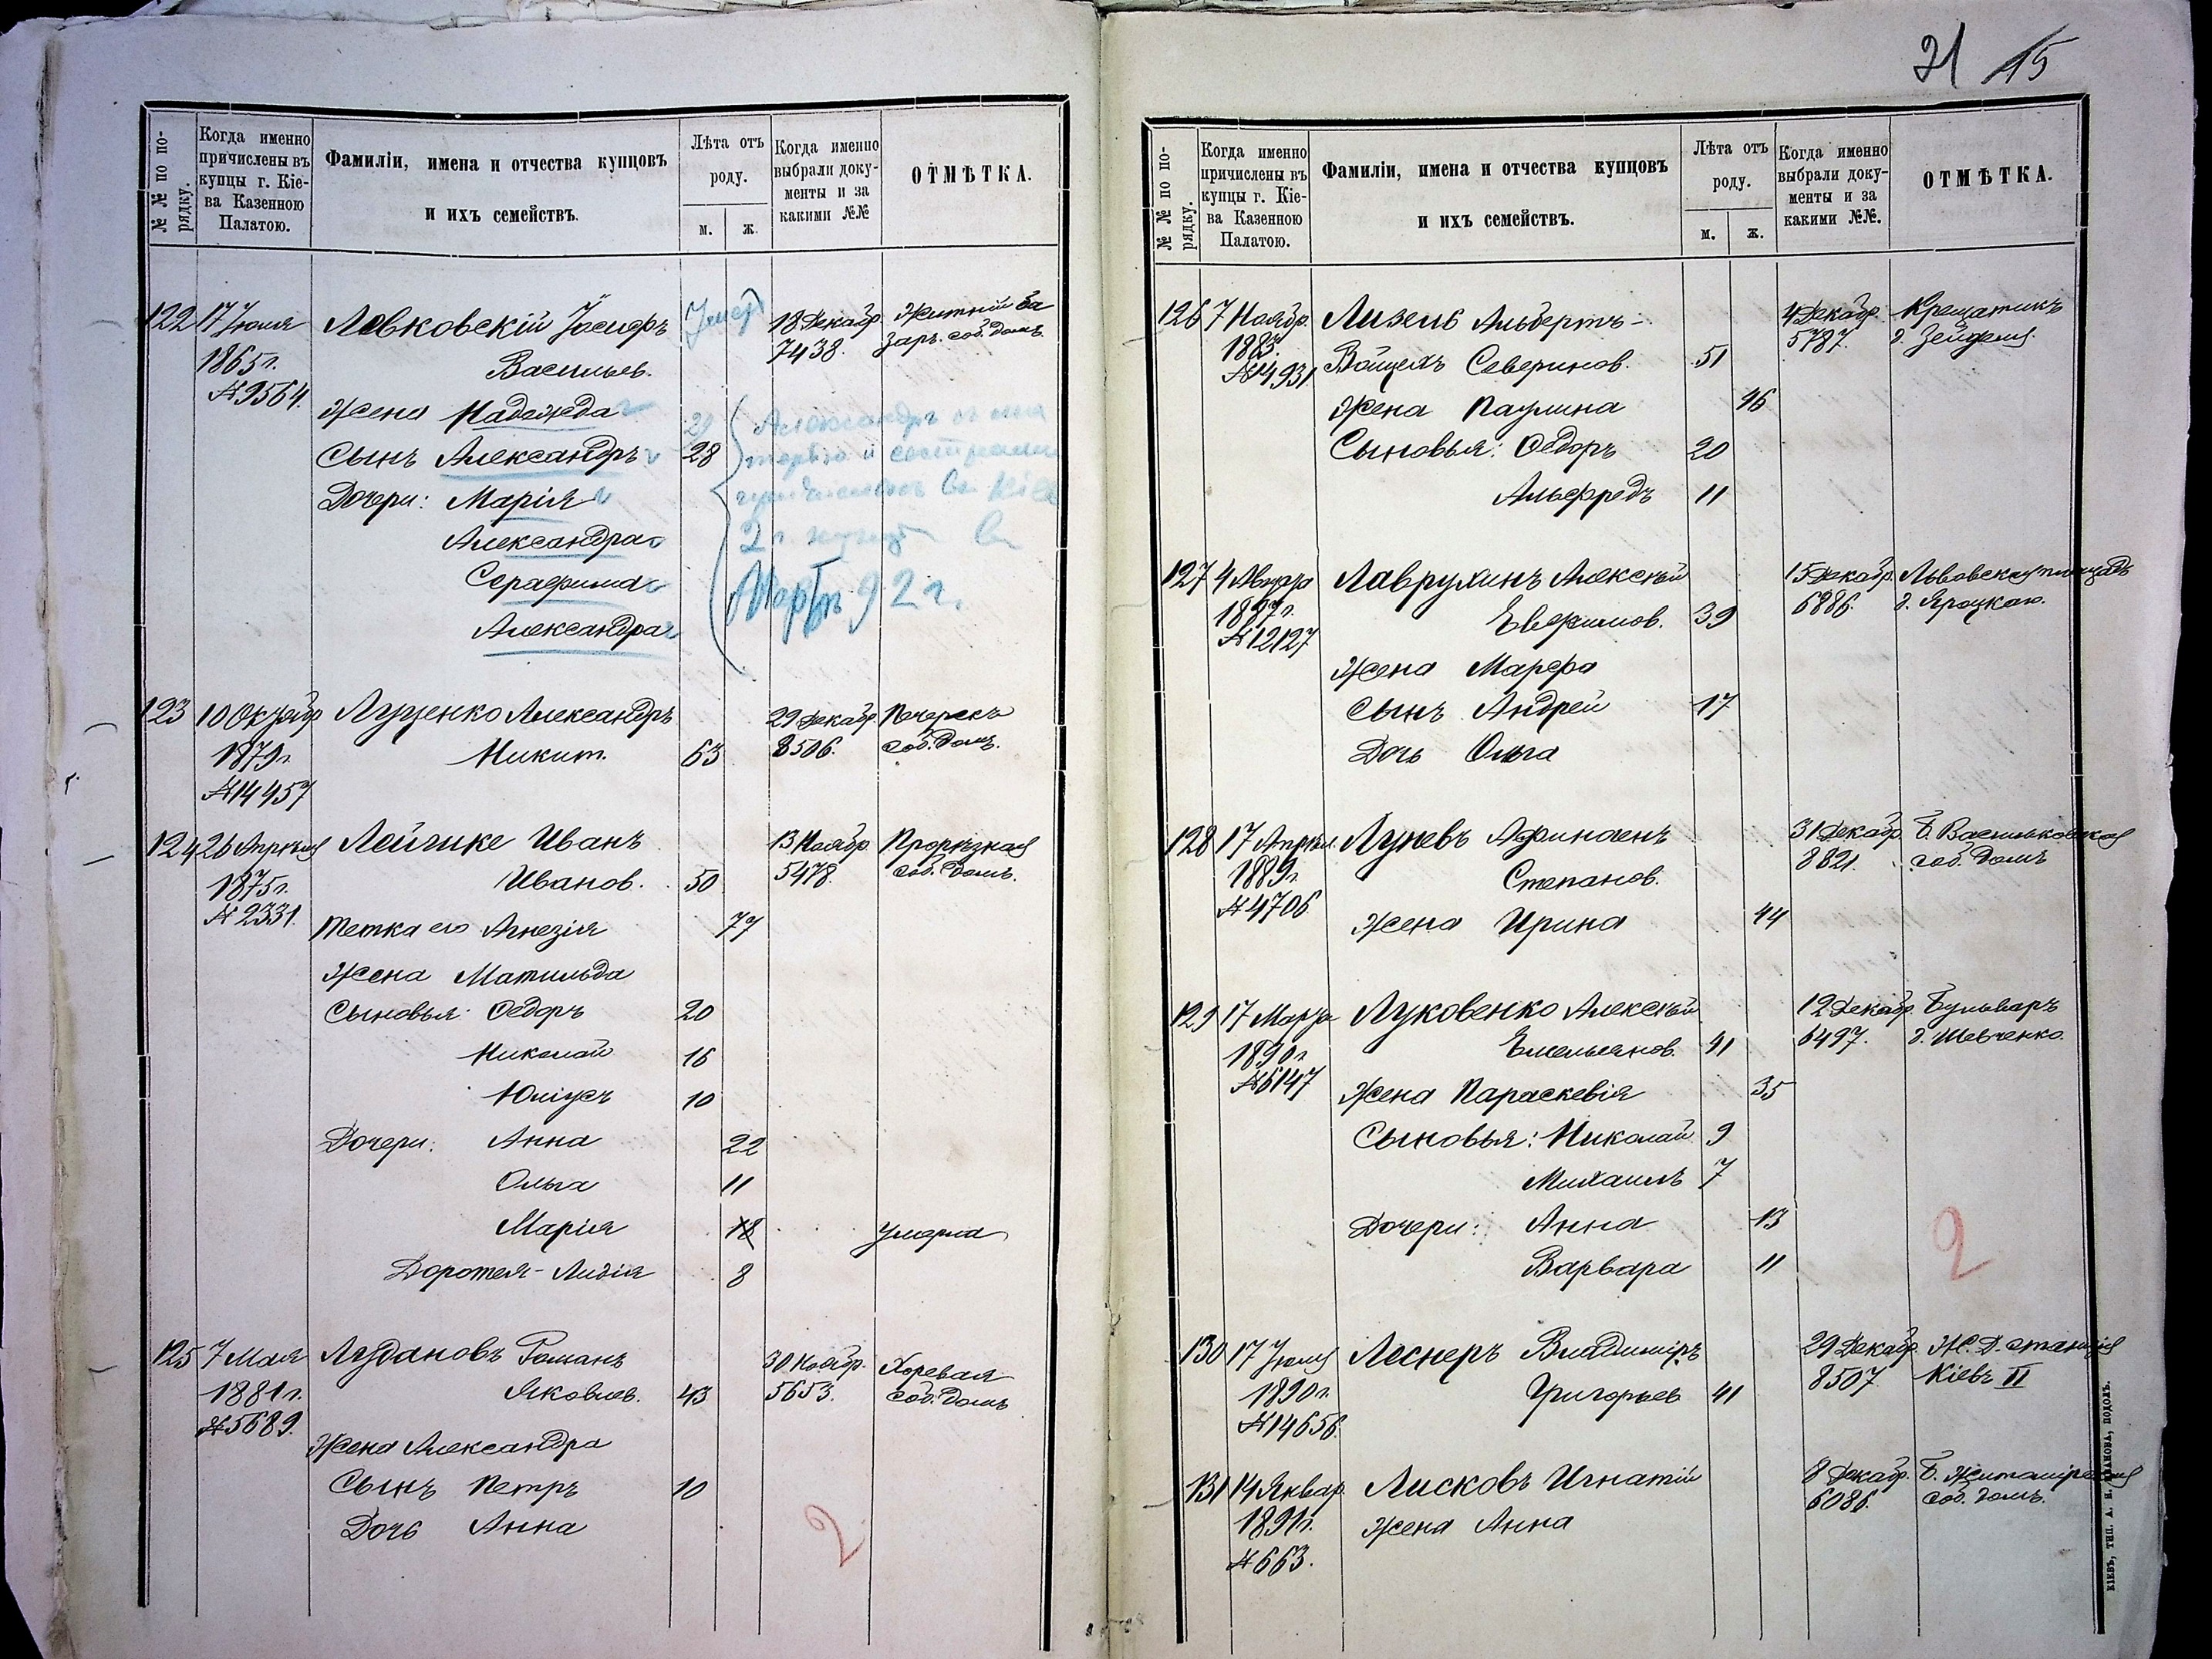 21 15
№ № по по-
рядку.
Когда именно
причислены въ
купцы г. Кіе-
ва Казенною
Палатою.
Фамиліи, имена и отчества купцовъ
и ихъ семействъ.
Лѣта отъ
роду.
м. ж.
Когда именно
выбрали доку-
менты и за
какими №№
ОТМѢТКА.
122 17 Іюля Левковскій Іосифъ 18 Декабр. Житній ба
1865 г. Васильев. 7438. заръ. соб. домъ.
№ 9564. Жена Надежда
Сынъ Александръ 28
Дочери: Марія
Александра
Серафима
Александра
Александръ съ ма
терью и сестрами
2 г.
Мартъ 92 г.
123 10 Октябр Луценко Александръ 29 Декабр Печерскъ
1879 г. Никит. 63 8506. соб. домъ.
№ 14457
124 26 Апрѣля Лейчике Иванъ 13 Ноябр Прорѣзная
1875 г. Иванов. 50 5478. соб. домъ.
№ 2331. Тетка его Агнезія 77
Жена Матильда
Сыновья: Ѳедоръ 20
Николай 16
Юліусъ 10
Дочери: Анна 22
Ольга 11
Марія 18 умерла
Доротея-Лидія 8
125 7 Мая Лудановъ Романъ 30 Ноябр. Хоревая
1881 г. Яковлев. 43 5653. соб. домъ
№ 5689. Жена Александра
Сынъ Петръ 10
Дочь Анна
2
№ № по по-
рядку.
Когда именно
причислены въ
купцы г. Кіе-
ва Казенною
Палатою.
Фамиліи, имена и отчества купцовъ
и ихъ семействъ.
Лѣта отъ
роду.
м. ж.
Когда именно
выбрали доку-
менты и за
какими №№.
ОТМѢТКА.
126 7 Ноябр. Лизель Альбертъ- 4 Декабр. Крещатикъ
1883. Войцехъ Северинов. 51 5787. д. Зейделя.
№ 14931. Жена Паулина 46
Сыновья: Ѳедоръ 20
Альфредъ 11
127 4 Лаврухинъ Алексѣй 15 Декабр. Львовская площадь
1887 г. Евфимов. 39 6886. д. Яроцкаго.
№ 12127 Жена Марфа
Сынъ Андрей 17
Дочь Ольга
128 17 Апрѣл. Луневъ 31 Декабр. Б. Васильковская
1889 г. Степанов. 8821. соб. домъ
№ 4706 Жена Ирина 44
129 17 Марта Луковенко Алексѣй 12 Декабр. Бульваръ
1890 г. Емельянов. 41 6497. д. Шевченко.
№ 6147 Жена Параскевія 35
Сыновья: Николай 9
Михаилъ 7
Дочери: Анна 13
Варвара 11
2
130 17 Іюля Леснеръ Владиміръ 29 Декабр. Ж. Д. станція
1890 г. Григорьев 41 8507 Кіевъ II
№ 14656.
131 14 Январ. Лисковъ Игнатій 8 Декабр. Б. Житомірская
1891 г. Жена Анна 6086. соб. домъ.
№ 663.
КІЕВЪ, ТИП. А. Н. ИВАНОВА, ПОДОЛЪ.